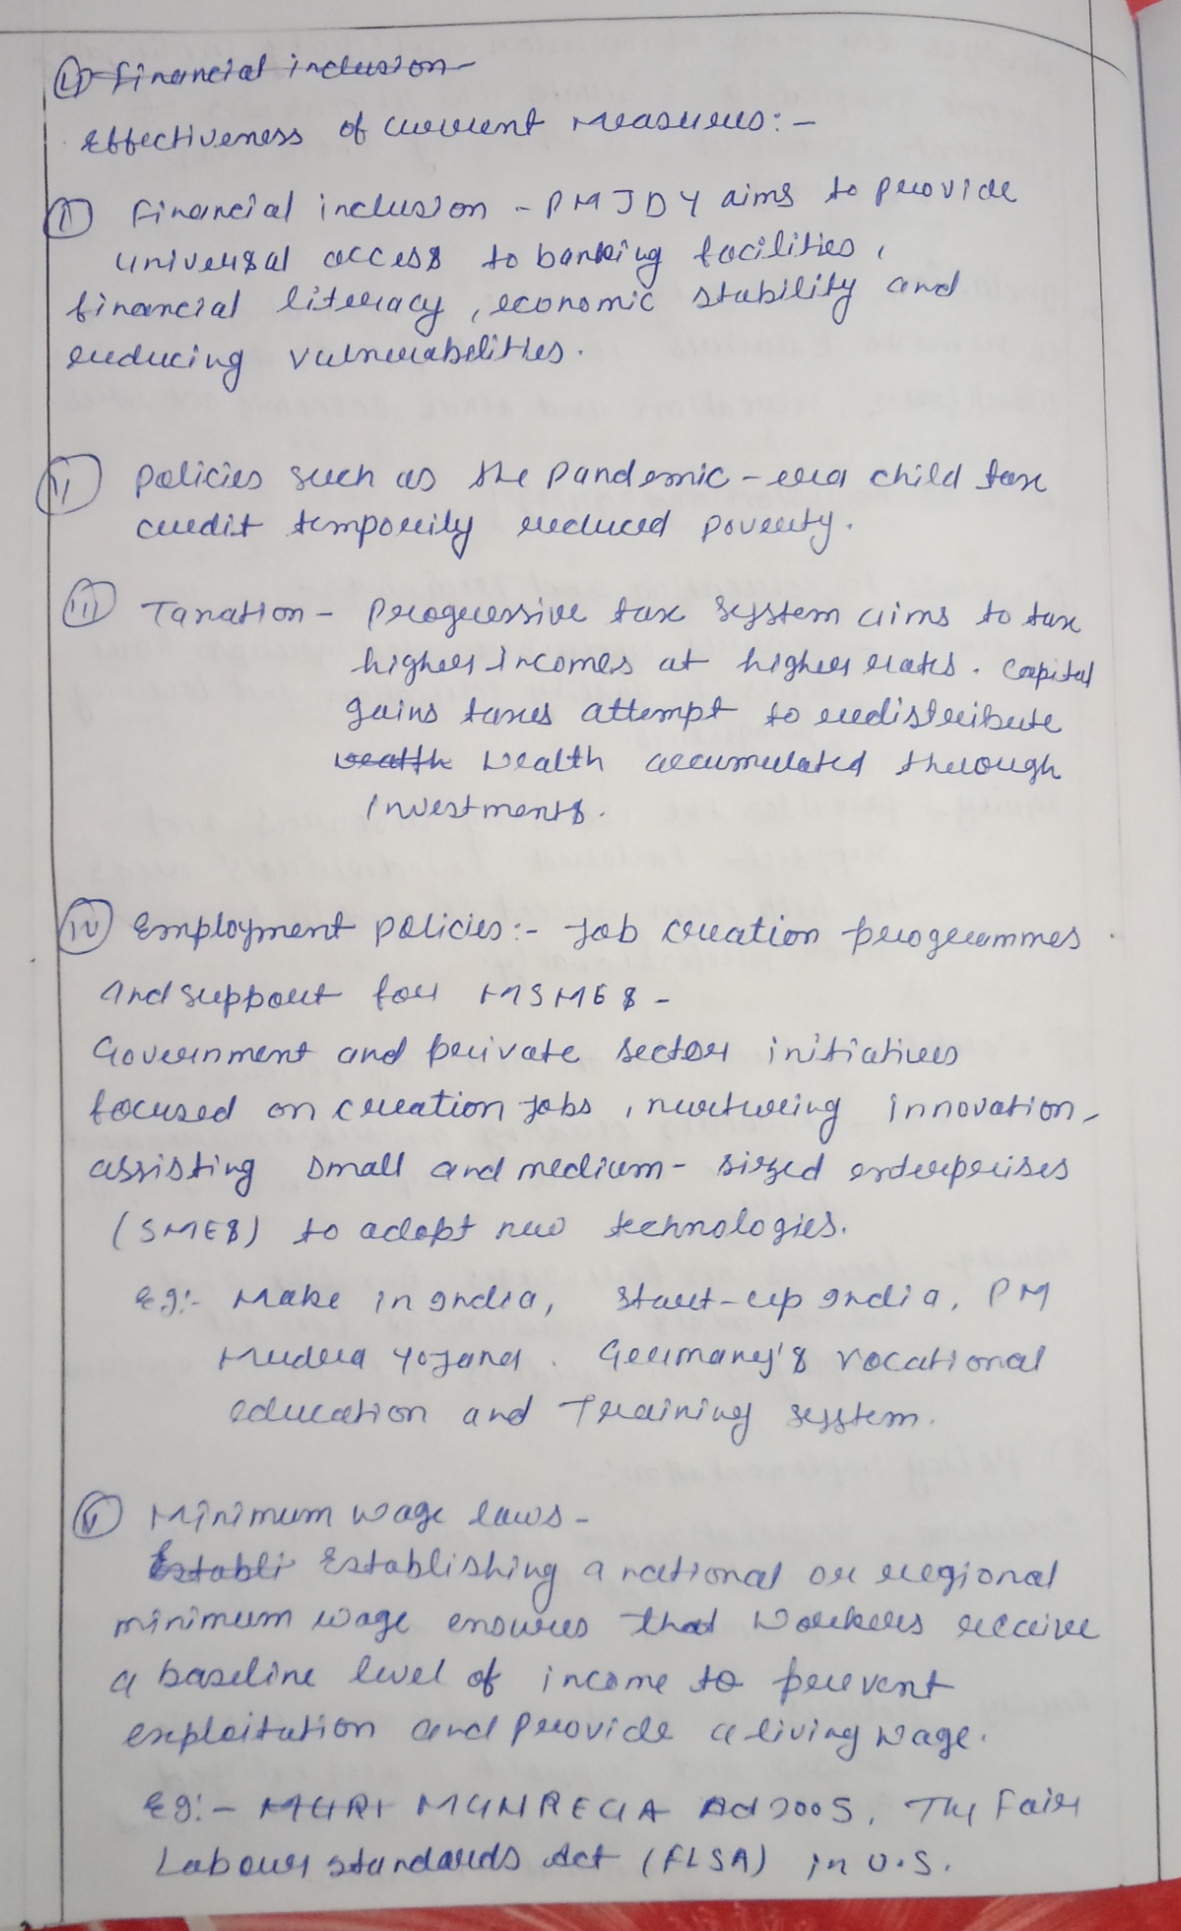 (1) Financial inclusion
Effectiveness of current measures:-
(i) Financial inclusion - PMJDY aims to provide
universal access to banking facilities,
financial literacy, economic stability and
reducing vulnerabelities.
(ii) Policies such as the pandemic-era child tax
credit temporily reduced poverty.
(iii) Taxation - Progressive tax system aims to tax
higher incomes at higher rates. Capital
gains taxes attempt to redistribute
wealth wealth accumulated through
investments.
(iv) Employment policies:- Job creation programmes
and support for MSMEs -
Government and private sector initiatives
focused on creation jobs, nurturing innovation,
assisting small and medium-sized enterprises
(SMEs) to adopt new technologies.
Eg:- Make in India, Start-up India, PM
Mudra Yojana. Germany's vocational
education and Training system.
(v) Minimum wage laws -
Establi Establishing a national or regional
minimum wage ensures that workers receive
a baseline level of income to prevent
exploitation and provide a living wage.
Eg:- MGNREGA Act 2005, The Fair
Labour standards Act (FLSA) in U.S.